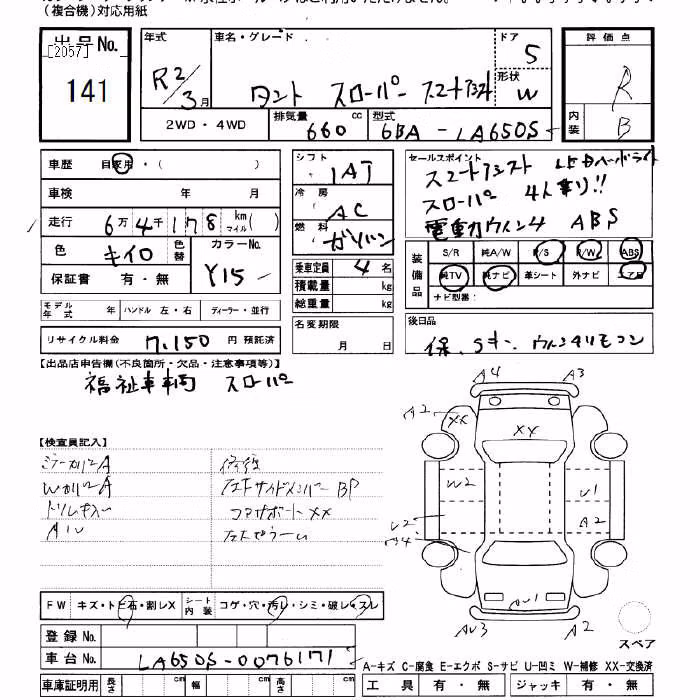 (複合機)対応用紙
出品No.
[2057]
141
年式
R2/3月
車名・グレード
タント スローパー スマートアシスト
ドア
5
形状
W
2WD・4WD
排気量
660 cc
型式
6BA-LA650S
評価点
R
内装
B
車歴 自家用・( )
車検 年 月
走行 6万4千178 km マイル( )
色 キイロ 色替
カラーNo.
Y15
保証書 有・無
シフト
IAT
冷房
AC
燃料
ガソリン
乗車定員 4名
積載量 kg
総重量 kg
セールスポイント
スマートアシスト LEDヘッドライト
スローパ 4人乗り!!
電動ウインチ ABS
装備品
S/R 純A/W P/S P/W ABS
純TV 純ナビ 革シート 外ナビ エアB
ナビ型番:
モデル年式 年 ハンドル 左・右 ディーラー・並行
リサイクル料金 7,150円 預託済
名変期限
月 日
後日品
保、Sキー、ウインチリモコン
【出品店申告欄(不良箇所・欠品・注意事項等)】
福祉車輌 スローパ
【検査員記入】
ミラーカバーA
Wカバー2A
トリムキズ
修復
左Fサイドメンバー BP
コアサポート XX
A4
A3
A2
XX
XX
W2
U1
A2
U2
AU1
AU3
A2
スペア
FW キズ・トビ石・割レX
シート内装 コゲ・穴・汚レ・シミ・破レ・スレ
登録No.
車台No. LA650S-0076171
A-キズ C-腐食 E-エクボ S-サビ U-凹ミ W-補修 XX-交換済
車庫証明用 長さ cm 幅 cm 高さ cm
工具 有・無 ジャッキ 有・無